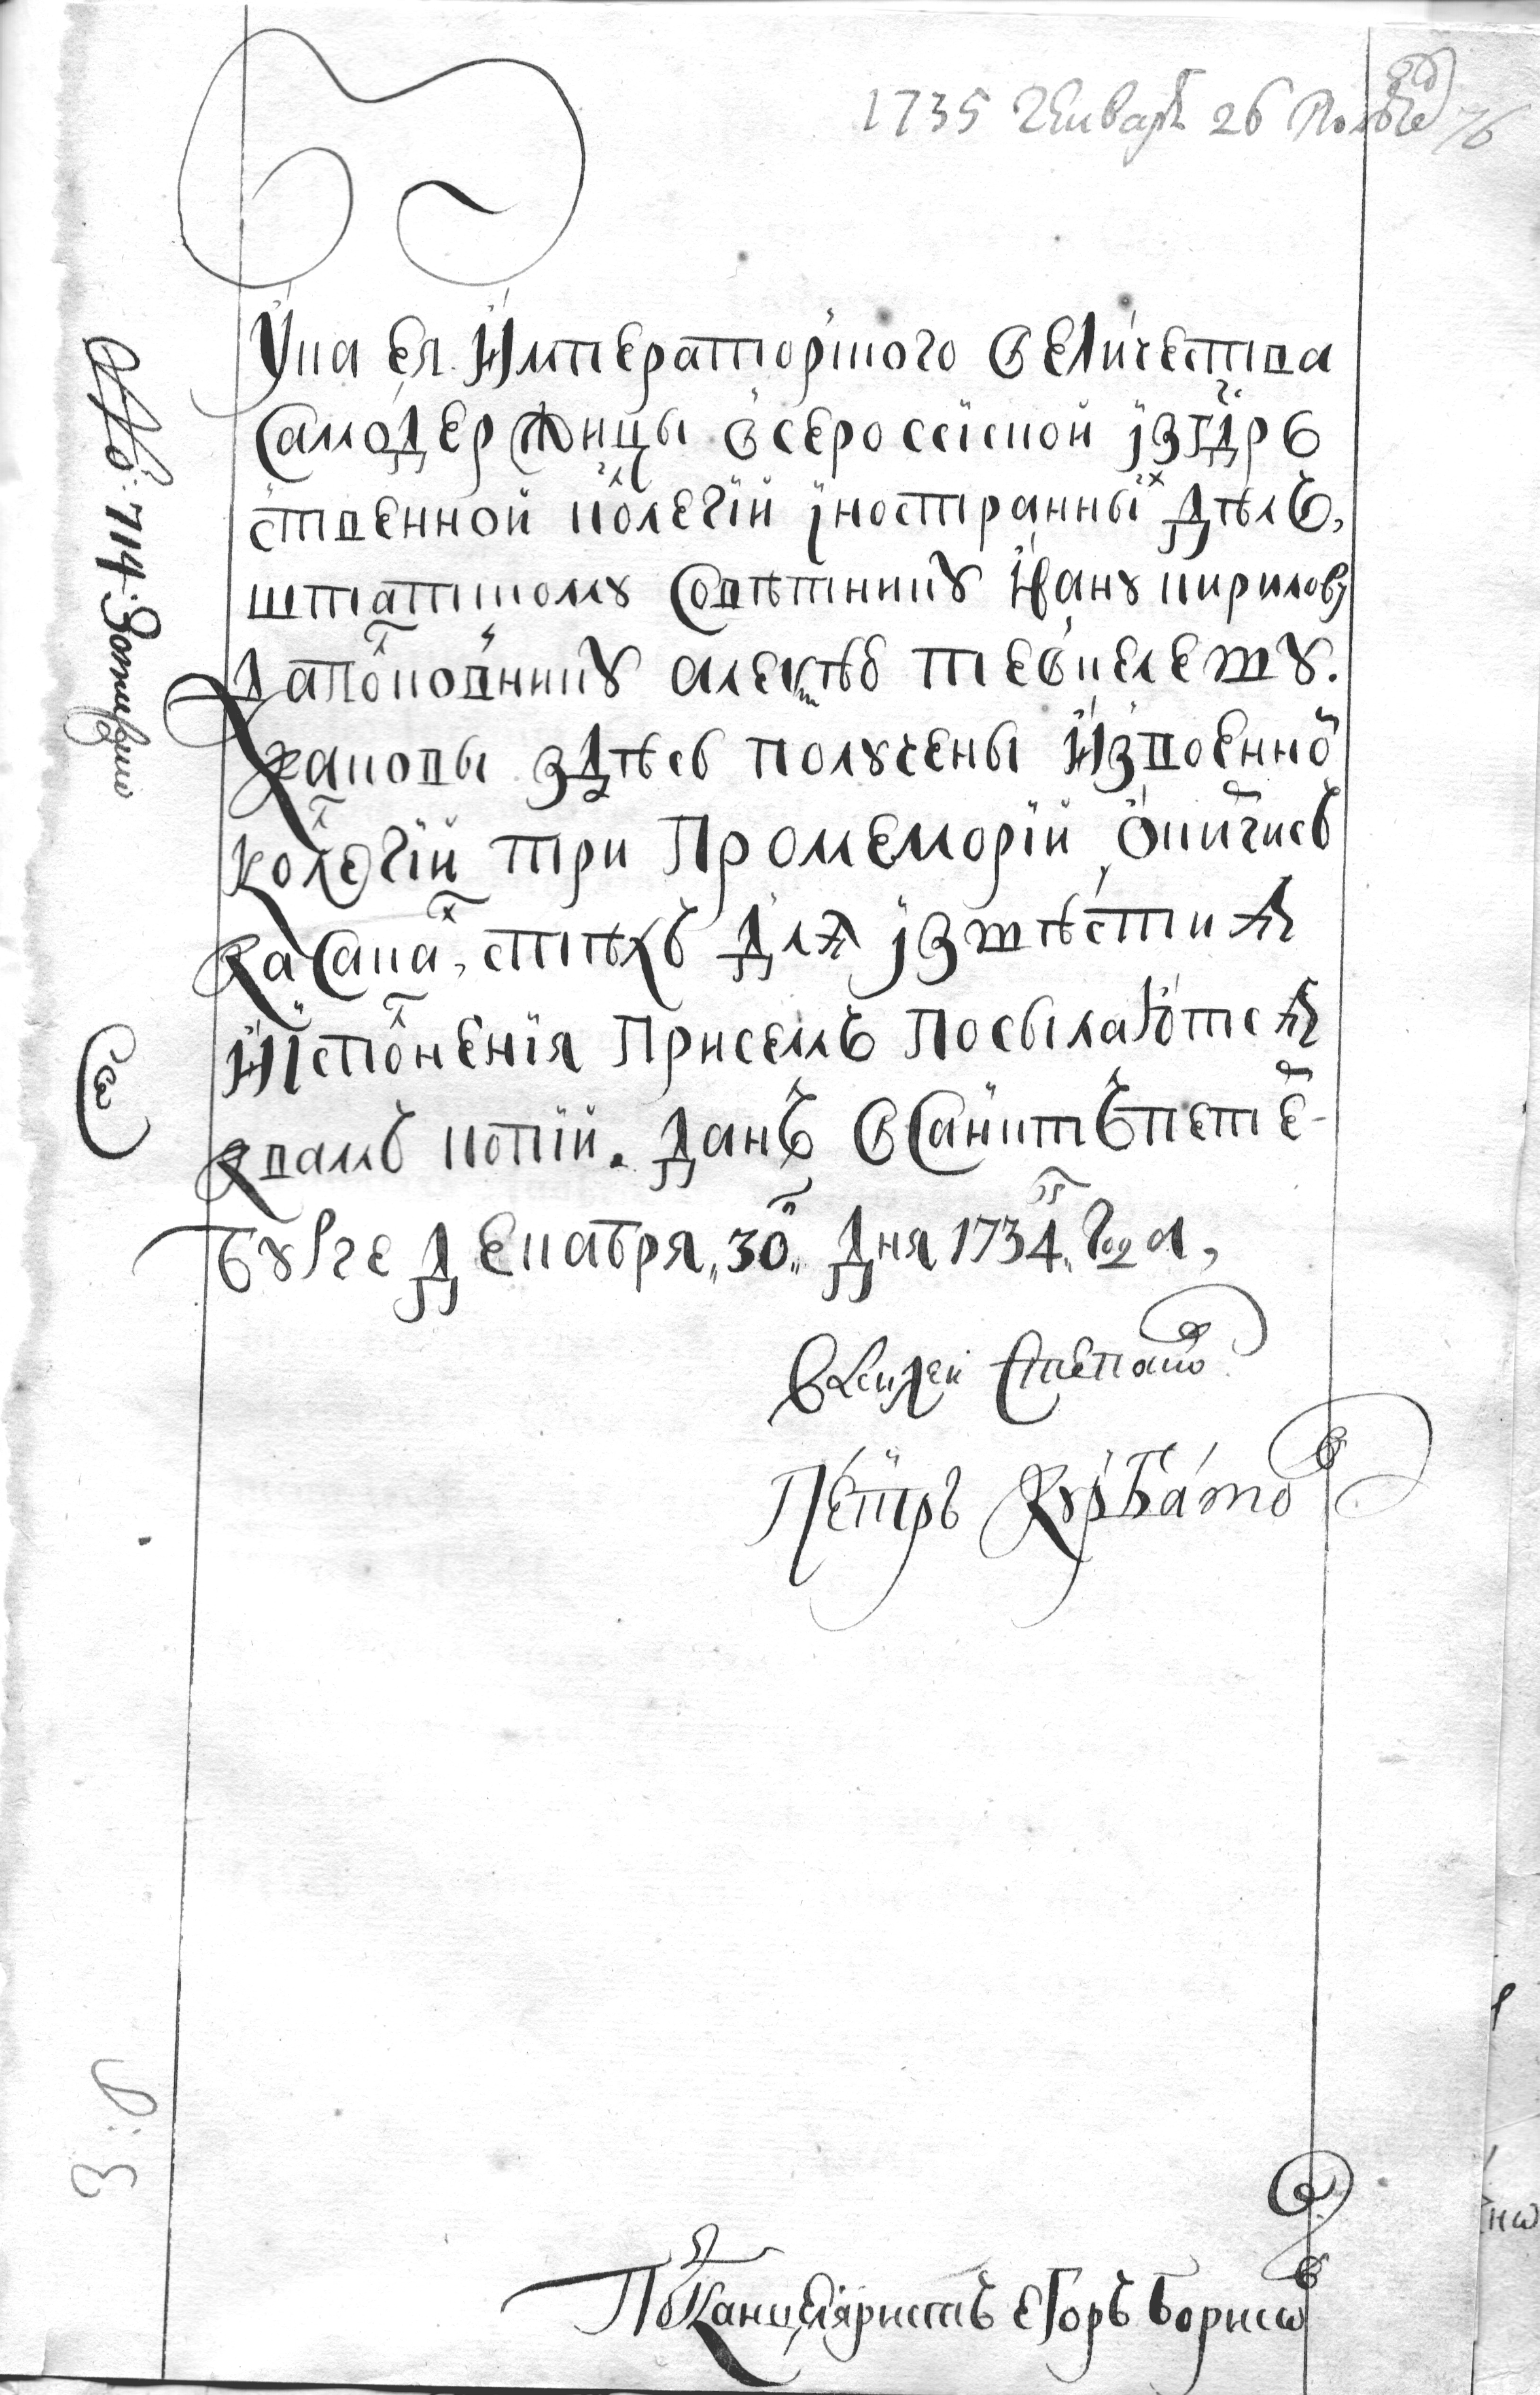 1735 Генваря 26
76
Указ ея Императорского Величества
Самодержицы Всероссиской из Гдрс
ственной колегии иностранных дѣлъ,
штатцкому совѣтнику Ивану кирилову
да полковнику алексѣю тевкелеву.
каковы здѣсь получены из военной
колегии три промемории
стѣхъ для извѣстия
и исполнения присемъ посылаются
вамъ копии. Данъ в Санктъпетер-
бурге декабря 30г дня 1734 года,
Василей Степанов
Петръ Курбатов
№: 714.
Подканцеляристъ Егоръ Борисов